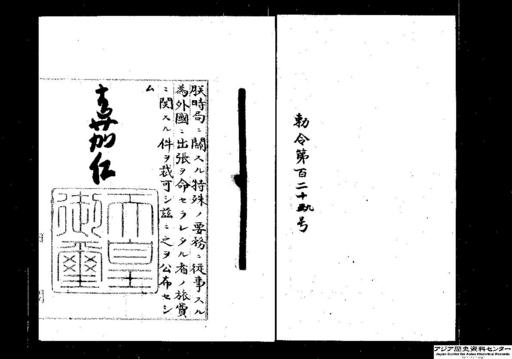 勅令第百二十号
朕時局ニ關スル特殊ノ要務ニ從事スル
為外國ニ出張ヲ命セラレタル者ノ旅費
ニ関スル件ヲ裁可シ茲ニ之ヲ公布セシ
ム
嘉仁
天皇
御璽
アジア歴史資料センター
Japan Center for Asian Historical Records